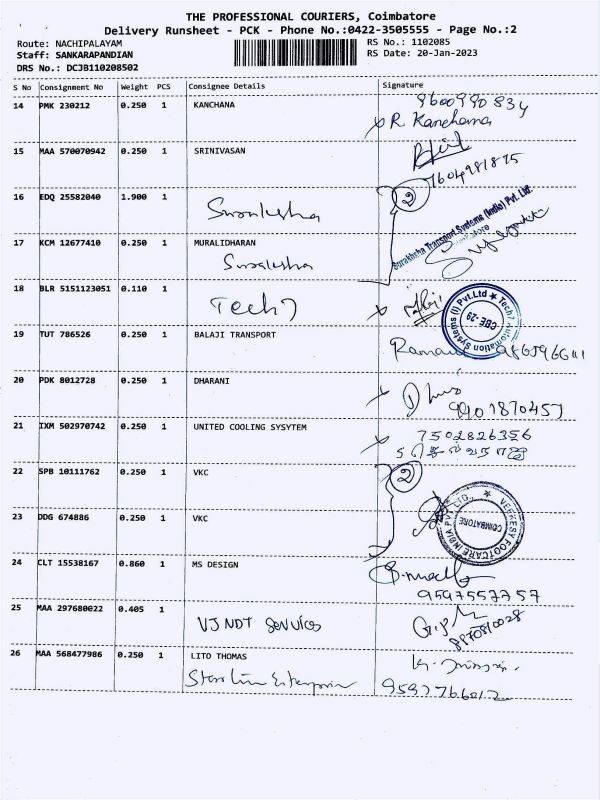 THE PROFESSIONAL COURIERS, Coimbatore
Delivery Runsheet - PCK - Phone No.:0422-3505555 - Page No.:2
Route: NACHIPALAYAM
RS No.: 1102085
Staff: SANKARAPANDIAN
RS Date: 20-Jan-2023
DRS No.: DCJB110208502
S No Consignment No Weight PCS Consignee Details Signature
14 PMK 230212 0.250 1 KANCHANA
R. Kanchana
15 MAA 570070942 0.250 1 SRINIVASAN
7604981875
16 EDQ 25582040 1.900 1
2
Suraksha
Surakhsha Transport Systems (India) Pvt. Ltd.
Coimbatore
17 KCM 12677410 0.250 1 MURALIDHARAN
Suraksha
18 BLR 5151123051 0.110 1
Tech 7
Tech7 Automation Systems (I) Pvt.Ltd
CBE-29
19 TUT 786526 0.250 1 BALAJI TRANSPORT
20 PDK 8012728 0.250 1 DHARANI
9901870457
21 IXM 502970742 0.250 1 UNITED COOLING SYSYTEM
7502826356
22 SPB 10111762 0.250 1 VKC
2
23 DDG 674886 0.250 1 VKC
VEEKESY FOOTCARE INDIA PVT. LTD.
COIMBATORE
24 CLT 15538167 0.860 1 MS DESIGN
9597557757
25 MAA 297680022 0.405 1
VJ NDT Services
8870810028
26 MAA 568477986 0.250 1 LITO THOMAS